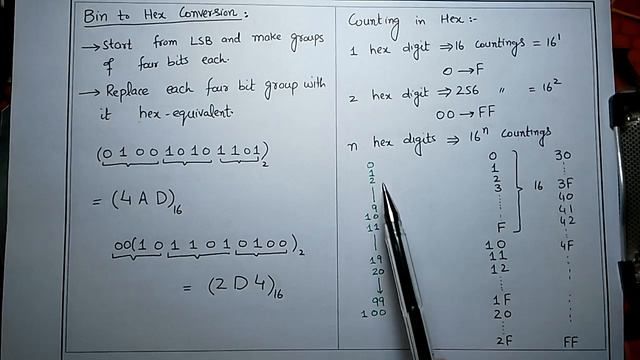 Bin to Hex Conversion:
→ Start from LSB and make groups
of four bits each.
→ Replace each four bit group with
it hex-equivalent.
(0 1 0 0 1 0 1 0 1 1 0 1)2
= (4 A D)16
00(1 0 1 1 0 1 0 1 0 0)2
= (2 D 4)16
Counting in Hex :-
1 hex digit ⇒ 16 countings = 16^1
0 → F
2 hex digit ⇒ 256 " = 16^2
00 → FF
n hex digits ⇒ 16^n countings
0
1
2
9
10
11
19
20
↓
99
100
0
1
2
3
F
16
10
11
12
1F
20
2F
30
3F
40
41
42
4F
FF